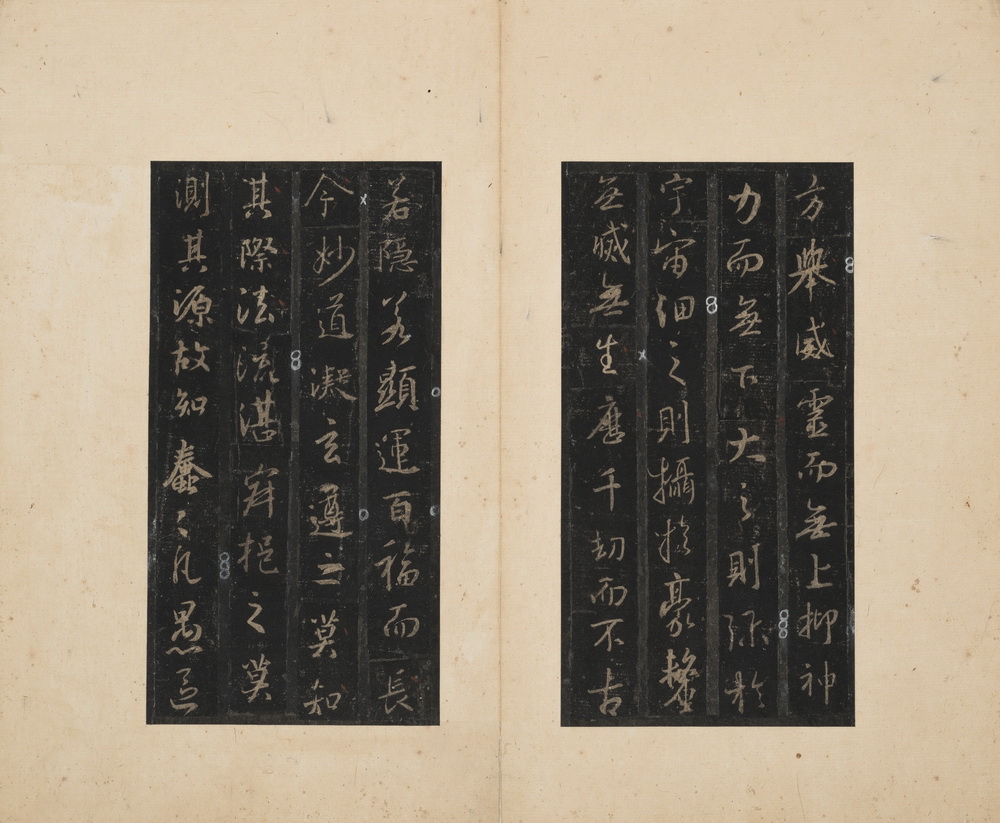 方舉威靈而無上抑神
力而無下大之則弥於
宇宙細之則攝於豪釐
無滅無生歷千劫而不古
若隱若顯運百福而長
今妙道凝玄遵之莫知
其際法流湛寂挹之莫
測其源故知蠢々凡愚區